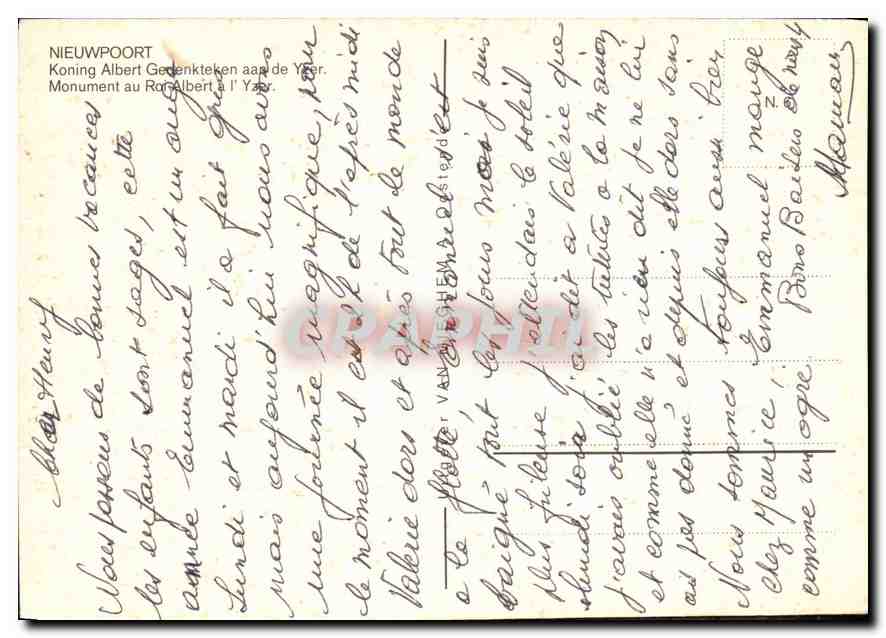 NIEUWPOORT
Koning Albert Gedenkteken aan de Yzer.
Monument au Roi Albert à l' Yzer.
N.
CPAPHIL
Cher Henry
Nous passons de bonnes vacances
les enfants sont sages, cette
année Emmanuel est un ange
Lundi et mardi il a fait gris
mais aujourd'hui nous avons
une journée magnifique, pour
le moment il est 2h de l'après midi
Valérie dors et après tout le monde
a la flotte, Emmanuel s'est
baigné tout les jours mais je suis
plus frileuse j'attendais le soleil
lundi soir j'ai dit a Valérie que
j'avais oublié les tututes a la maison
et comme elle n'a rien dit je ne lui
ais pas donné et depuis elle dors sans
Nous sommes toujours aussi bien
chez Maurice, Emmanuel mange
comme un ogre. Bons Baisers de nous 4
Maman